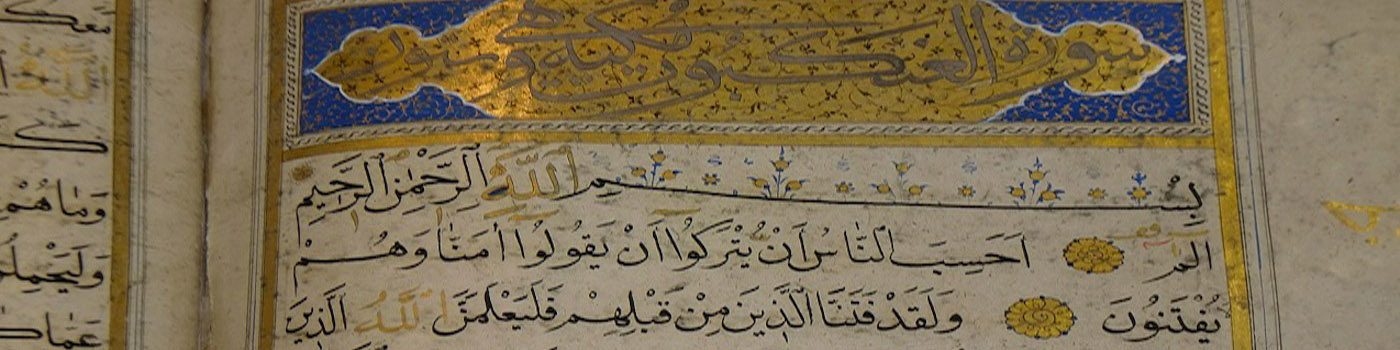 سورة العنكبوت مكية وهى
بِسْمِ اللَّهِ الرَّحْمٰنِ الرَّحِيمِ
الم اَحَسِبَ النَّاسُ اَنْ يُتْرَكُوا اَنْ يَقُولُوا اٰمَنَّا وَهُمْ
يُفْتَنُونَ وَلَقَدْ فَتَنَّا الَّذِينَ مِنْ قَبْلِهِمْ فَلَيَعْلَمَنَّ اللَّهُ الَّذِينَ
معك
اللّٰه
وَمَا هُمْ